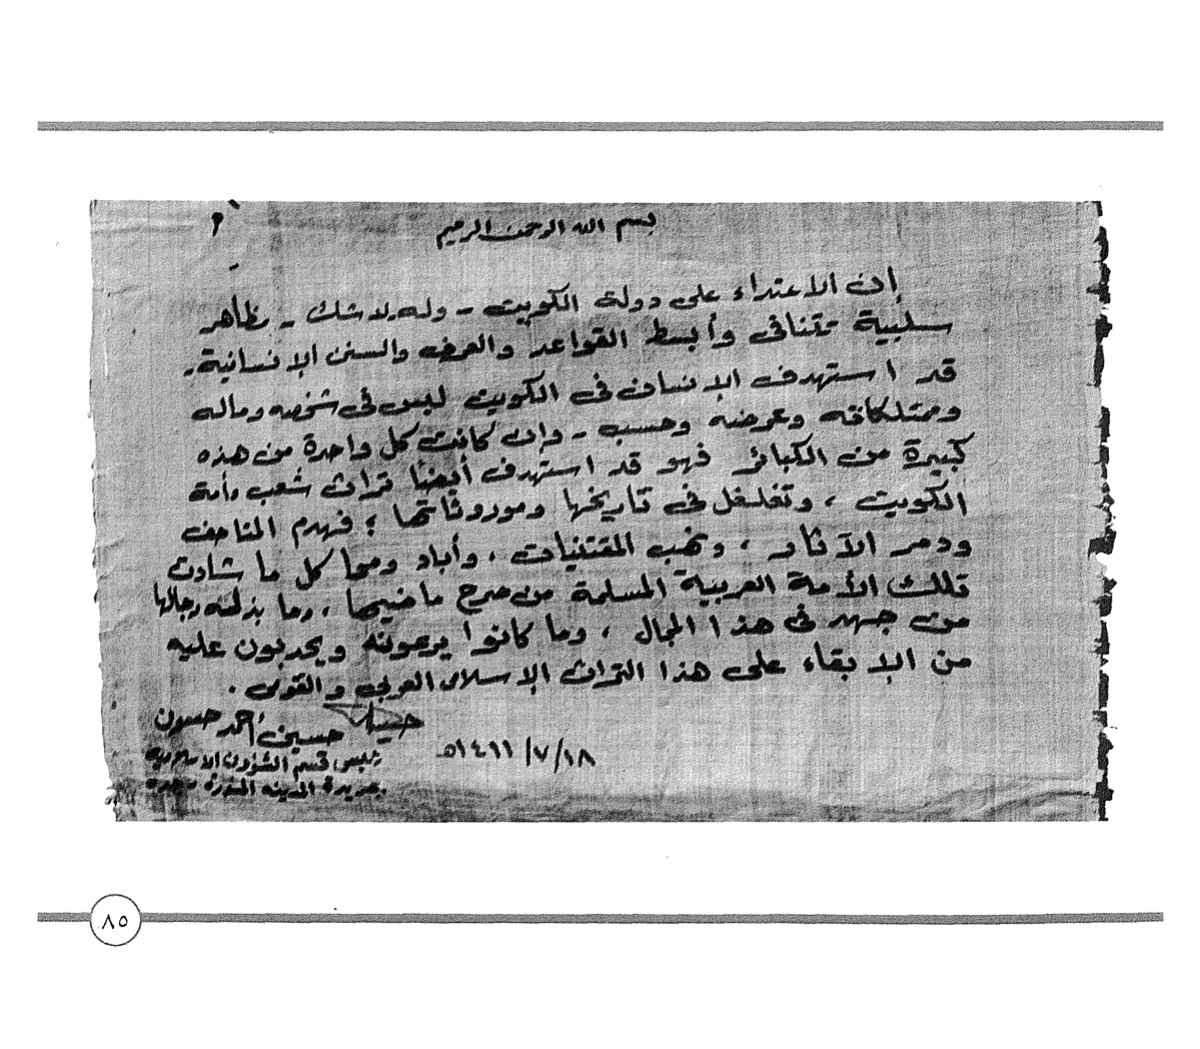 بسم الله الرحمن الرحيم
إن الاعتداء على دولة الكويت - وله بلا شك - مظاهر
سلبية تتنافى وأبسط القواعد والعرف والسنن الإنسانية.
قد استهدف الإنسان في الكويت ليس في شخصه وماله
وممتلكاته وعرضه وحسب - وإن كانت كل واحدة من هذه
كبيرة من الكبائر فهو قد استهدف أيضا تراث شعب وأمة
الكويت ، وتغلغل في تاريخها وموروثاتها ؛ فهدم المتاحف
ودمر الآثار ، ونهب المقتنيات ، وأباد ومحا كل ما شادت
تلك الأمة العربية المسلمة من صرح ماضيها ، وما بذلته رجالها
من جهد في هذا المجال ، وما كانوا يرعونه ويحدبون عليه
من الإبقاء على هذا التراث الإسلامي العربي والقومي .
حسين أحمد حسون
رئيس قسم الشؤون الإسلامية
بجريدة المدينة المنورة بجدة
١٨/٧/١٤١١هـ
٨٥